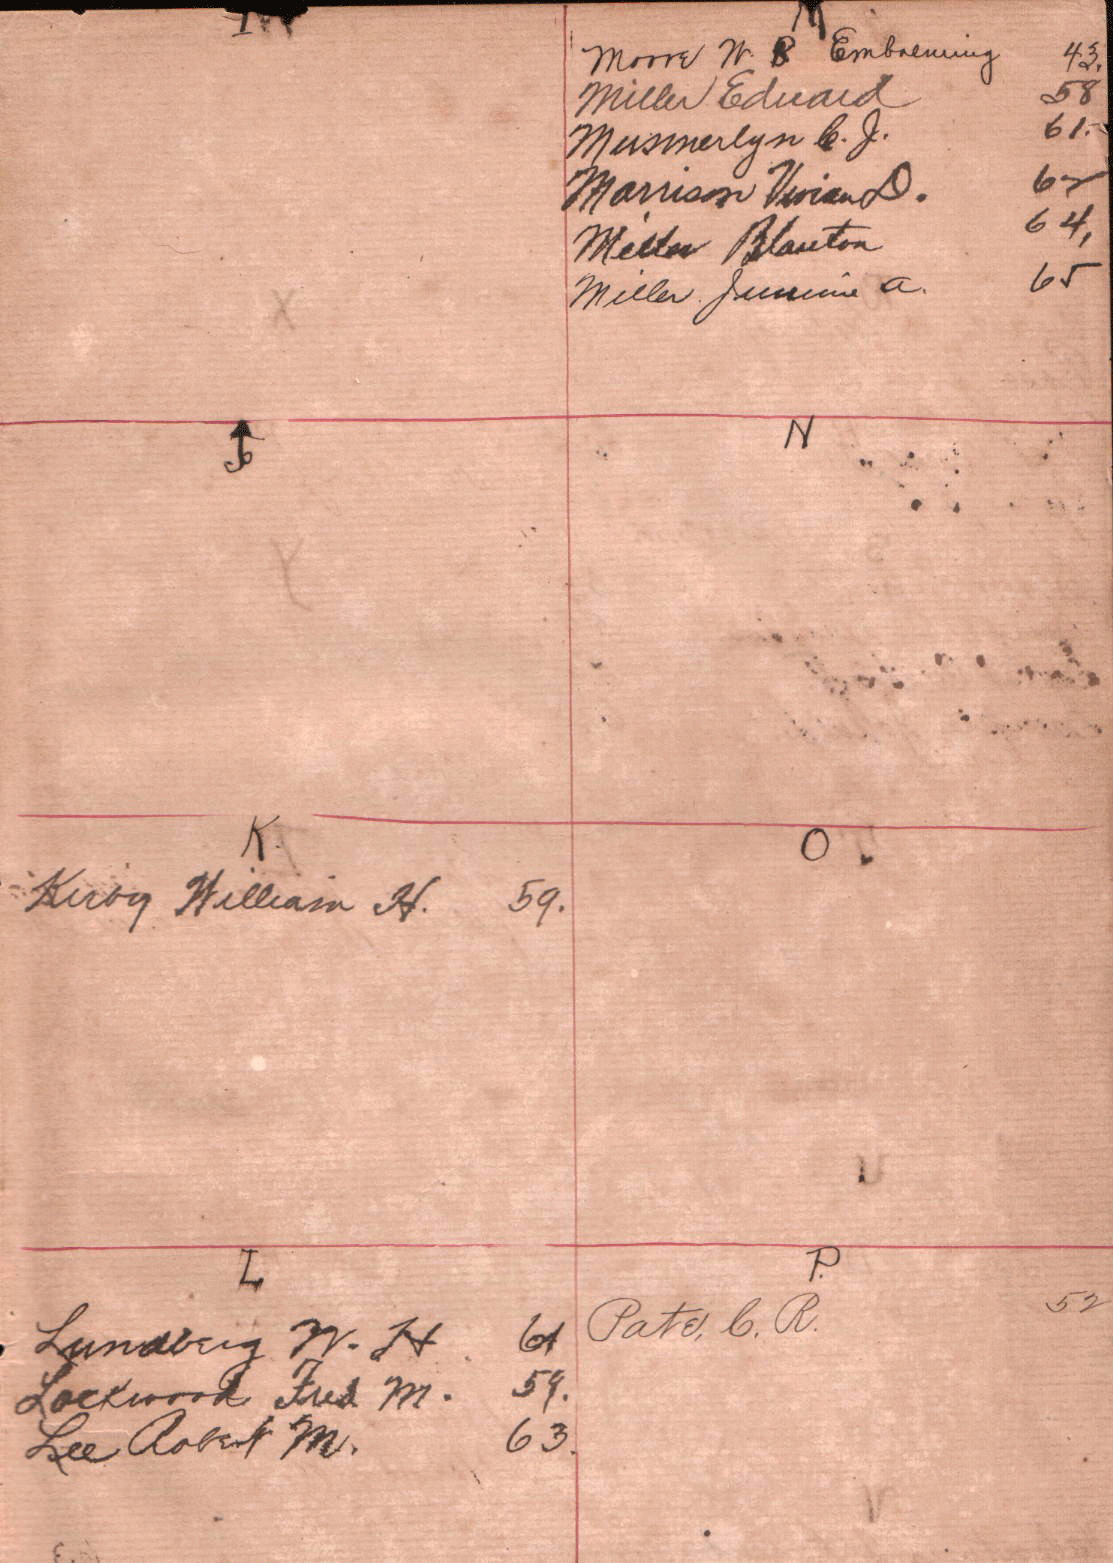 I
J
K.
Kirby William H. 59.
L
Lundberg W. H 61
Lockwood Fred M. 59.
Lee Robert M. 63.
M
Moore W. B Embalming 43.
Miller Edward 58
C. J. 61.
Marrison Vivian D. 62
Miller Blanton 64,
Miller A. 65
N
O
P.
Pate, C. R. 52